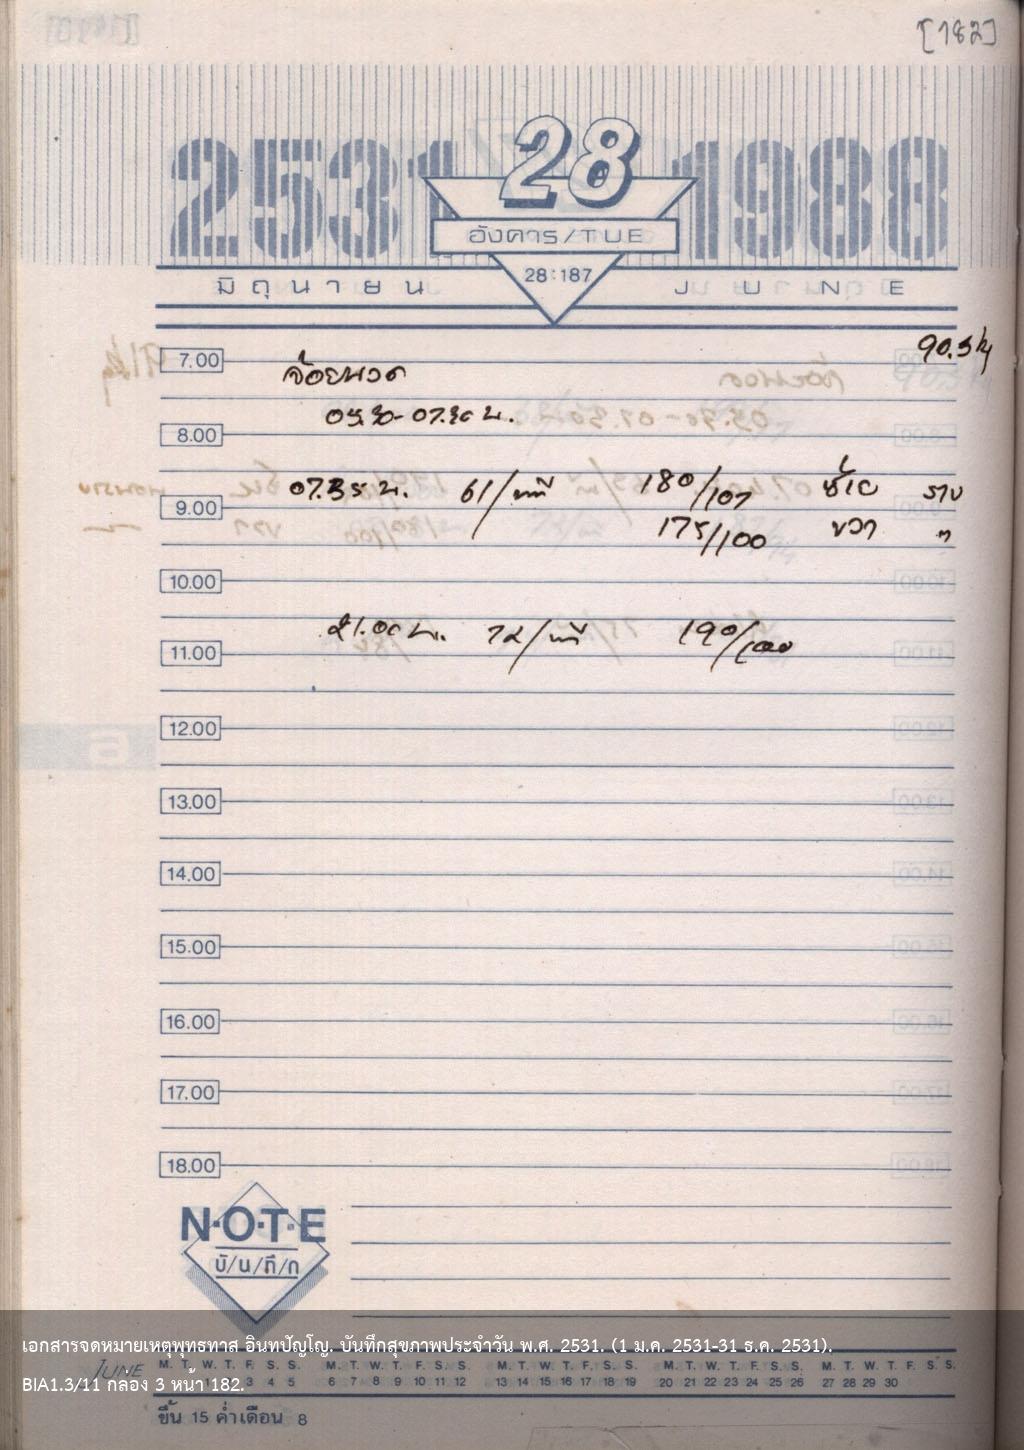 [182]
2531 28 1988
อังคาร/TUE
28:187
มิถุนายน JUNE
90.5 kg
7.00
จ้อยนวด
05.30-07.30 น.
8.00
07.35 น. 61/นาที 180/107 ซ้าย ราบ
9.00
175/100 ขวา "
10.00
21.00 น. 72/นาที 190/100
11.00
12.00
13.00
14.00
15.00
16.00
17.00
18.00
N·O·T·E
บั/น/ทึ/ก
เอกสารจดหมายเหตุพุทธทาส อินทปัญโญ. บันทึกสุขภาพประจำวัน พ.ศ. 2531. (1 ม.ค. 2531-31 ธ.ค. 2531).
JUNE M. T. W. T. F. S. S. M. T. W. T. F. S. S. M. T. W. T. F. S. S. M. T. W. T. F. S. S. M. T. W. T. F. S. S.
3 4 5 6 7 8 9 10 11 12 13 14 15 16 17 18 19 20 21 22 23 24 25 26 27 28 29 30
BIA1.3/11 กล่อง 3 หน้า 182.
ขึ้น 15 ค่ำเดือน 8